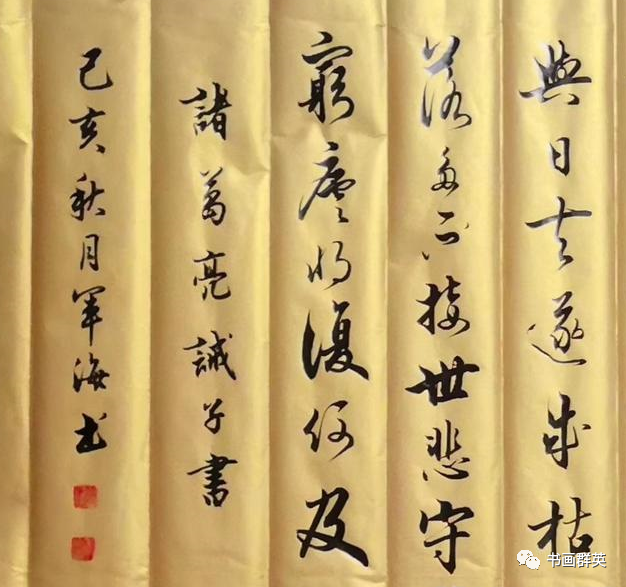 與日去遂成枯
落多不接世悲守
窮廬将復何及
諸葛亮誡子書
己亥秋月軍海书
书画群英